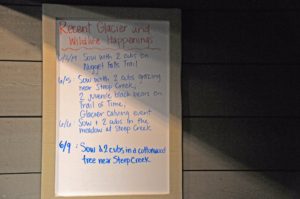 Recent Glacier and
Wildlife Happenings
Sow with 2 cubs on
Nugget Falls Trail
6/5 Sow with 2 cubs grazing
near Steep Creek,
2 juvenile black bears on
Trail of Time,
Glacier calving event
6/6 Sow + 2 cubs in the
meadow at Steep Creek
6/9 : Sow & 2 cubs in a cottonwood
tree near Steep Creek